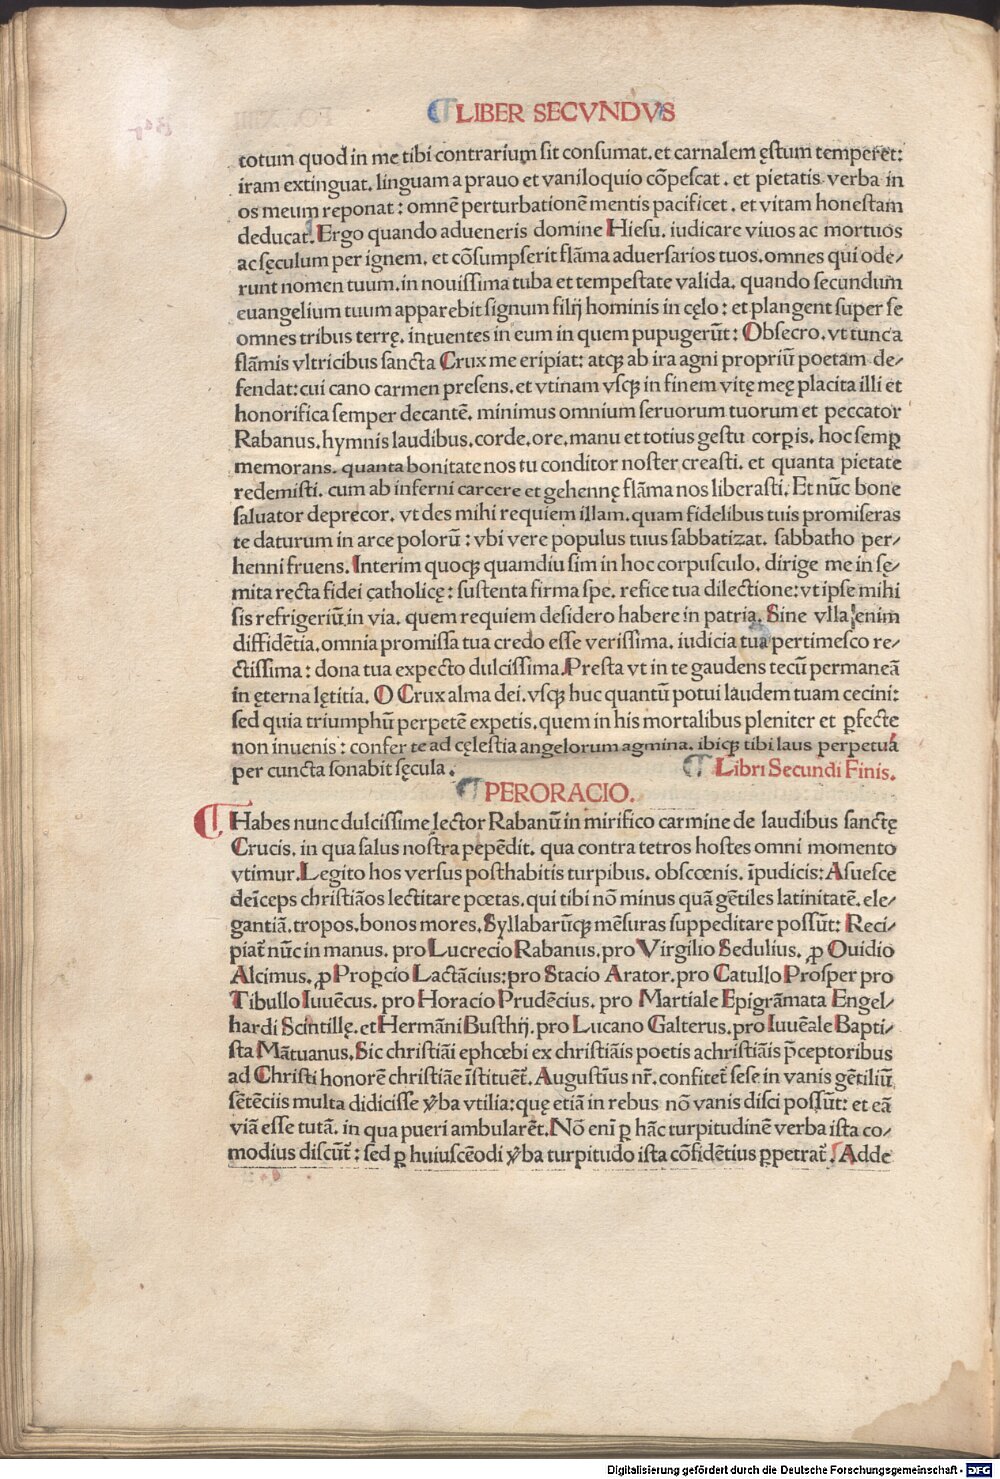 ¶LIBER SECVNDVS
totum quod in me tibi contrarium sit consumat. et carnalem ęstum temperet:
iram extinguat. linguam a prauo et vaniloquio cōpescat. et pietatis verba in
os meum reponat: omnē perturbationē mentis pacificet. et vitam honestam
deducat. Ergo quando adueneris domine Hiesu. iudicare viuos ac mortuos
ac sęculum per ignem. et cōsumpserit flāma aduersarios tuos. omnes qui ode⸗
runt nomen tuum. in nouissima tuba et tempestate valida. quando secundum
euangelium tuum apparebit signum filij hominis in cęlo: et plangent super se
omnes tribus terrę. intuentes in eum in quem pupugerūt: Obsecro. vt tunc a
flāmis vltricibus sancta Crux me eripiat: atqꝫ ab ira agni propriū poetam de⸗
fendat: cui cano carmen presens. et vtinam vsqꝫ in finem vitę meę placita illi et
honorifica semper decantē. minimus omnium seruorum tuorum et peccator
Rabanus. hymnis laudibus. corde. ore. manu et totius gestu corꝑis. hoc semꝑ
memorans. quanta bonitate nos tu conditor noster creasti. et quanta pietate
redemisti. cum ab inferni carcere et gehennę flāma nos liberasti. Et nūc bone
saluator deprecor. vt des mihi requiem illam. quam fidelibus tuis promiseras
te daturum in arce polorū: vbi vere populus tuus sabbatizat. sabbatho per⸗
henni fruens. Interim quoqꝫ quamdiu sim in hoc corpusculo. dirige me in sę⸗
mita recta fidei catholicę: sustenta firma spe. refice tua dilectione: vt ipse mihi
sis refrigeriū in via. quem requiem desidero habere in patria. Sine vlla enim
diffidētia. omnia promissa tua credo esse verissima. iudicia tua pertimesco re⸗
ctissima: dona tua expecto dulcissima. Presta vt in te gaudens tecū permaneā
in ęterna lętitia. O Crux alma dei. vsqꝫ huc quantū potui laudem tuam cecini:
sed quia triumphū perpetē expetis. quem in his mortalibus pleniter et ꝑfecte
non inuenis: confer te ad cęlestia angelorum agmina. ibiqꝫ tibi laus perpetua
per cuncta sonabit sęcula. ¶Libri Secundi Finis.
¶PERORACIO.
¶Habes nunc dulcissime lector Rabanū in mirifico carmine de laudibus sanctę
Crucis. in qua salus nostra pepēdit. qua contra tetros hostes omni momento
vtimur. Legito hos versus posthabitis turpibus. obscœnis. īpudicis: Asuesce
deīceps christiāos lectitare pœtas. qui tibi nō minus quā gētiles latinitatē. ele⸗
gantiā. tropos. bonos mores. Syllabarūqꝫ mēsuras suppeditare possūt: Reci⸗
piat̄ nūc in manus. pro Lucrecio Rabanus. pro Virgilio Sedulius. ꝓ Ouidio
Alcimus. ꝓ Proꝑcio Lactācius: pro Stacio Arator. pro Catullo Prosper pro
Tibullo Iuuēcus. pro Horacio Prudēcius. pro Martiale Epigrāmata Engel⸗
hardi Scintillę. et Hermāni Busthij. pro Lucano Galterus. pro Iuuēale Bapti⸗
sta Mātuanus. Sic christiāi ephœbi ex christiāis poetis a christiāis p̄ceptoribus
ad Christi honorē christiāe īstituēt̄. Augustīus nr̄. confitet̄ sese in vanis gētiliū
sētēciis multa didicisse v̄ba vtilia: quę etiā in rebus nō vanis disci possūt: et eā
viā esse tutā. in qua pueri ambularēt. Nō enī ꝑ hāc turpitudinē verba ista co⸗
modius discūt̄: sed ꝑ huiuscēodi v̄ba turpitudo ista cōfidētius ꝑpetrat̄. Adde
Digitalisierung gefördert durch die Deutsche Forschungsgemeinschaft - DFG